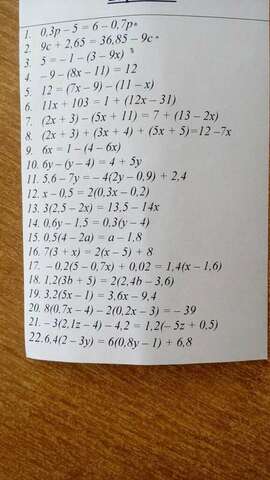 1. 0,3p – 5 = 6 – 0,7p
2. 9c + 2,65 = 36,85 – 9c
3. 5 = – 1 – (3 – 9x)
4. – 9 – (8x – 11) = 12
5. 12 = (7x – 9) – (11 – x)
6. 11x + 103 = 1 + (12x – 31)
7. (2x + 3) – (5x + 11) = 7 + (13 – 2x)
8. (2x + 3) + (3x + 4) + (5x + 5) = 12 –7x
9. 6x = 1 – (4 – 6x)
10. 6y – (y – 4) = 4 + 5y
11. 5,6 – 7y = – 4(2y – 0,9) + 2,4
12. x – 0,5 = 2(0,3x – 0,2)
13. 3(2,5 – 2x) = 13,5 – 14x
14. 0,6y – 1,5 = 0,3(y – 4)
15. 0,5(4 – 2a) = a – 1,8
16. 7(3 + x) = 2(x – 5) + 8
17. – 0,2(5 – 0,7x) + 0,02 = 1,4(x – 1,6)
18. 1,2(3b + 5) = 2(2,4b – 3,6)
19. 3,2(5x – 1) = 3,6x – 9,4
20. 8(0,7x – 4) – 2(0,2x – 3) = – 39
21. – 3(2,1z – 4) – 4,2 = 1,2(– 5z + 0,5)
22. 6,4(2 – 3y) = 6(0,8y – 1) + 6,8